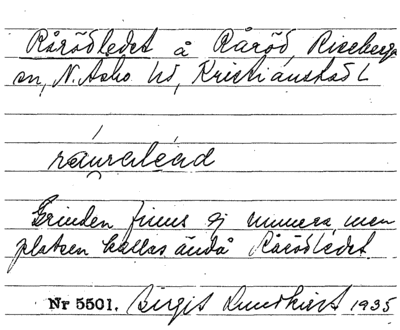 Rårödledet å Råröd Riseberga
sn, N. Åsbo hd, Kristianstads l
Grinden finns ej numera men
platsen kallas ändå Rårödledet.
Nr 5501. Birgit Lundkvist 1935